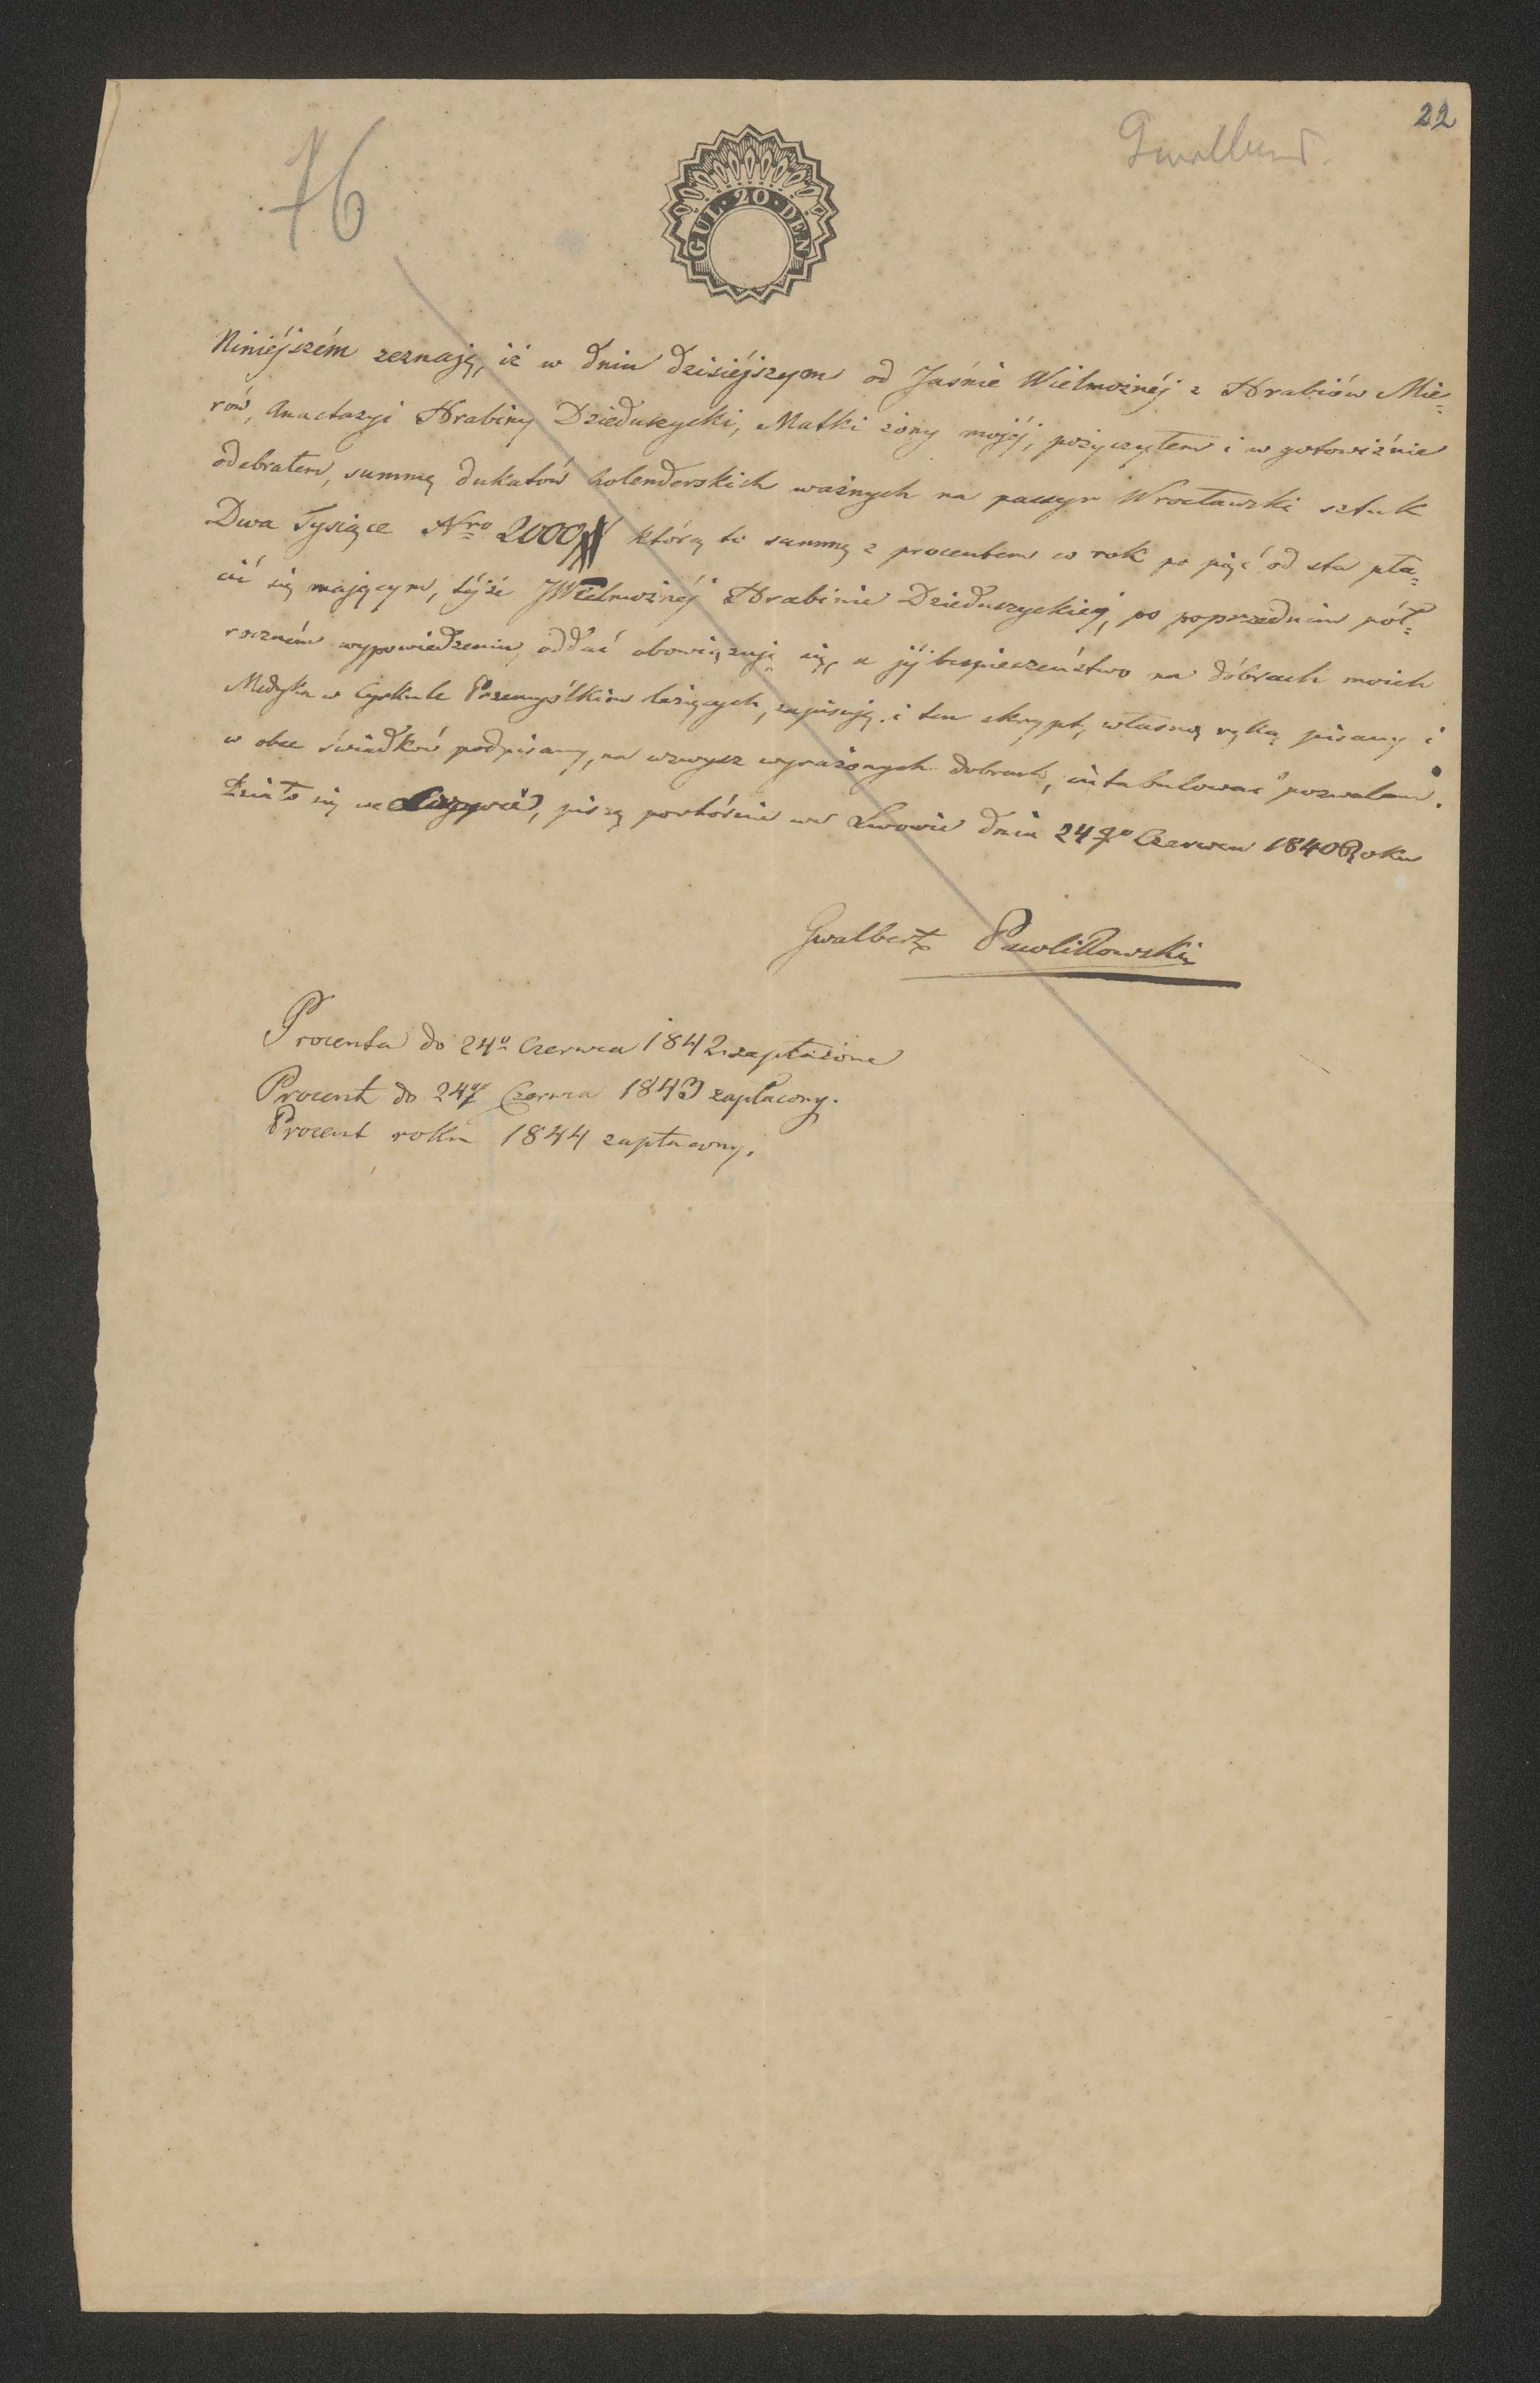 22
76
GUL · 20 · DEN
Niniéjszém zeznaję, iż w dniu dzisiéjszym od Jaśnie Wielmożnéj z Hrabiów Mie=
rów, Anastazyi Hrabiny Dzieduszycki, Matki żony mojéj, pożyczyłem i w gotowiźnie
odebrałem, summę dukatów holenderskich ważnych na passyr Wrocławski sztuk
Dwa Tysiące Nro 2000 którą to summę z procentem co rok po pięć od sta pła=
cić się mającym, téjże JWielmożnéj Hrabinie Dzieduszyckiej, po poprzedniem pół=
roczném wypowiedzeniu, oddać obowiązuję się, a jéj bespieczeństwo na dóbrach moich
Medyka w Cyrkule Przemyślkim leżących, zapisuję. i ten skrypt, własną ręką pisany i
w obec świadków podpisany, na wzwysz wyrażonych dobrach, intabulować pozwalam.
Działo się we piszę powtórnie we Lwowie dnia 24go Czerwca 1840 Roku
Gwalbert Pawlikowski
Procenta do 24o Czerwca 1842 zapłacone
Procent do 24go Czerwca 1843 zapłacony.
Procent roku 1844 zapłacony.